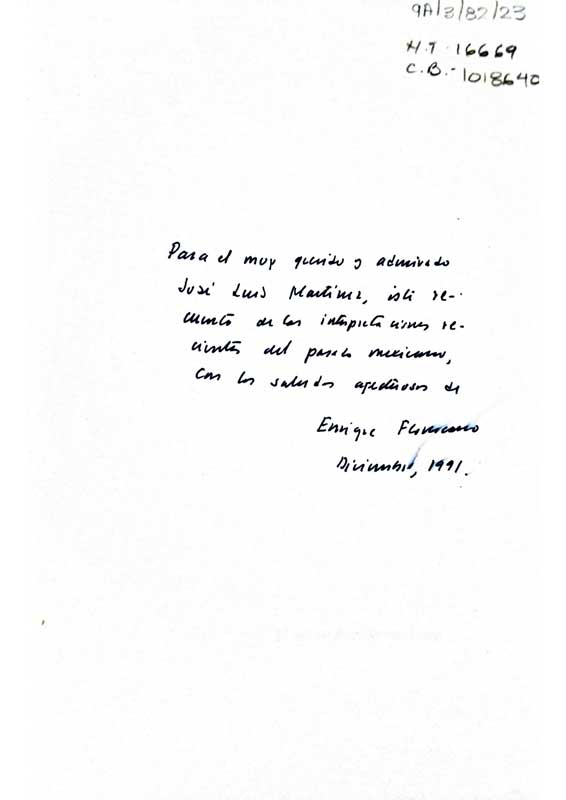 9A/3/82/23
N.T. 16669
C.B.- 1018640
Para el muy querido y admirado
José Luis Martínez, este re-
cuento de las interpretaciones re-
cientes del pasado mexicano,
con los saludos afectuosos de
Enrique Florescano
Diciembre, 1991.